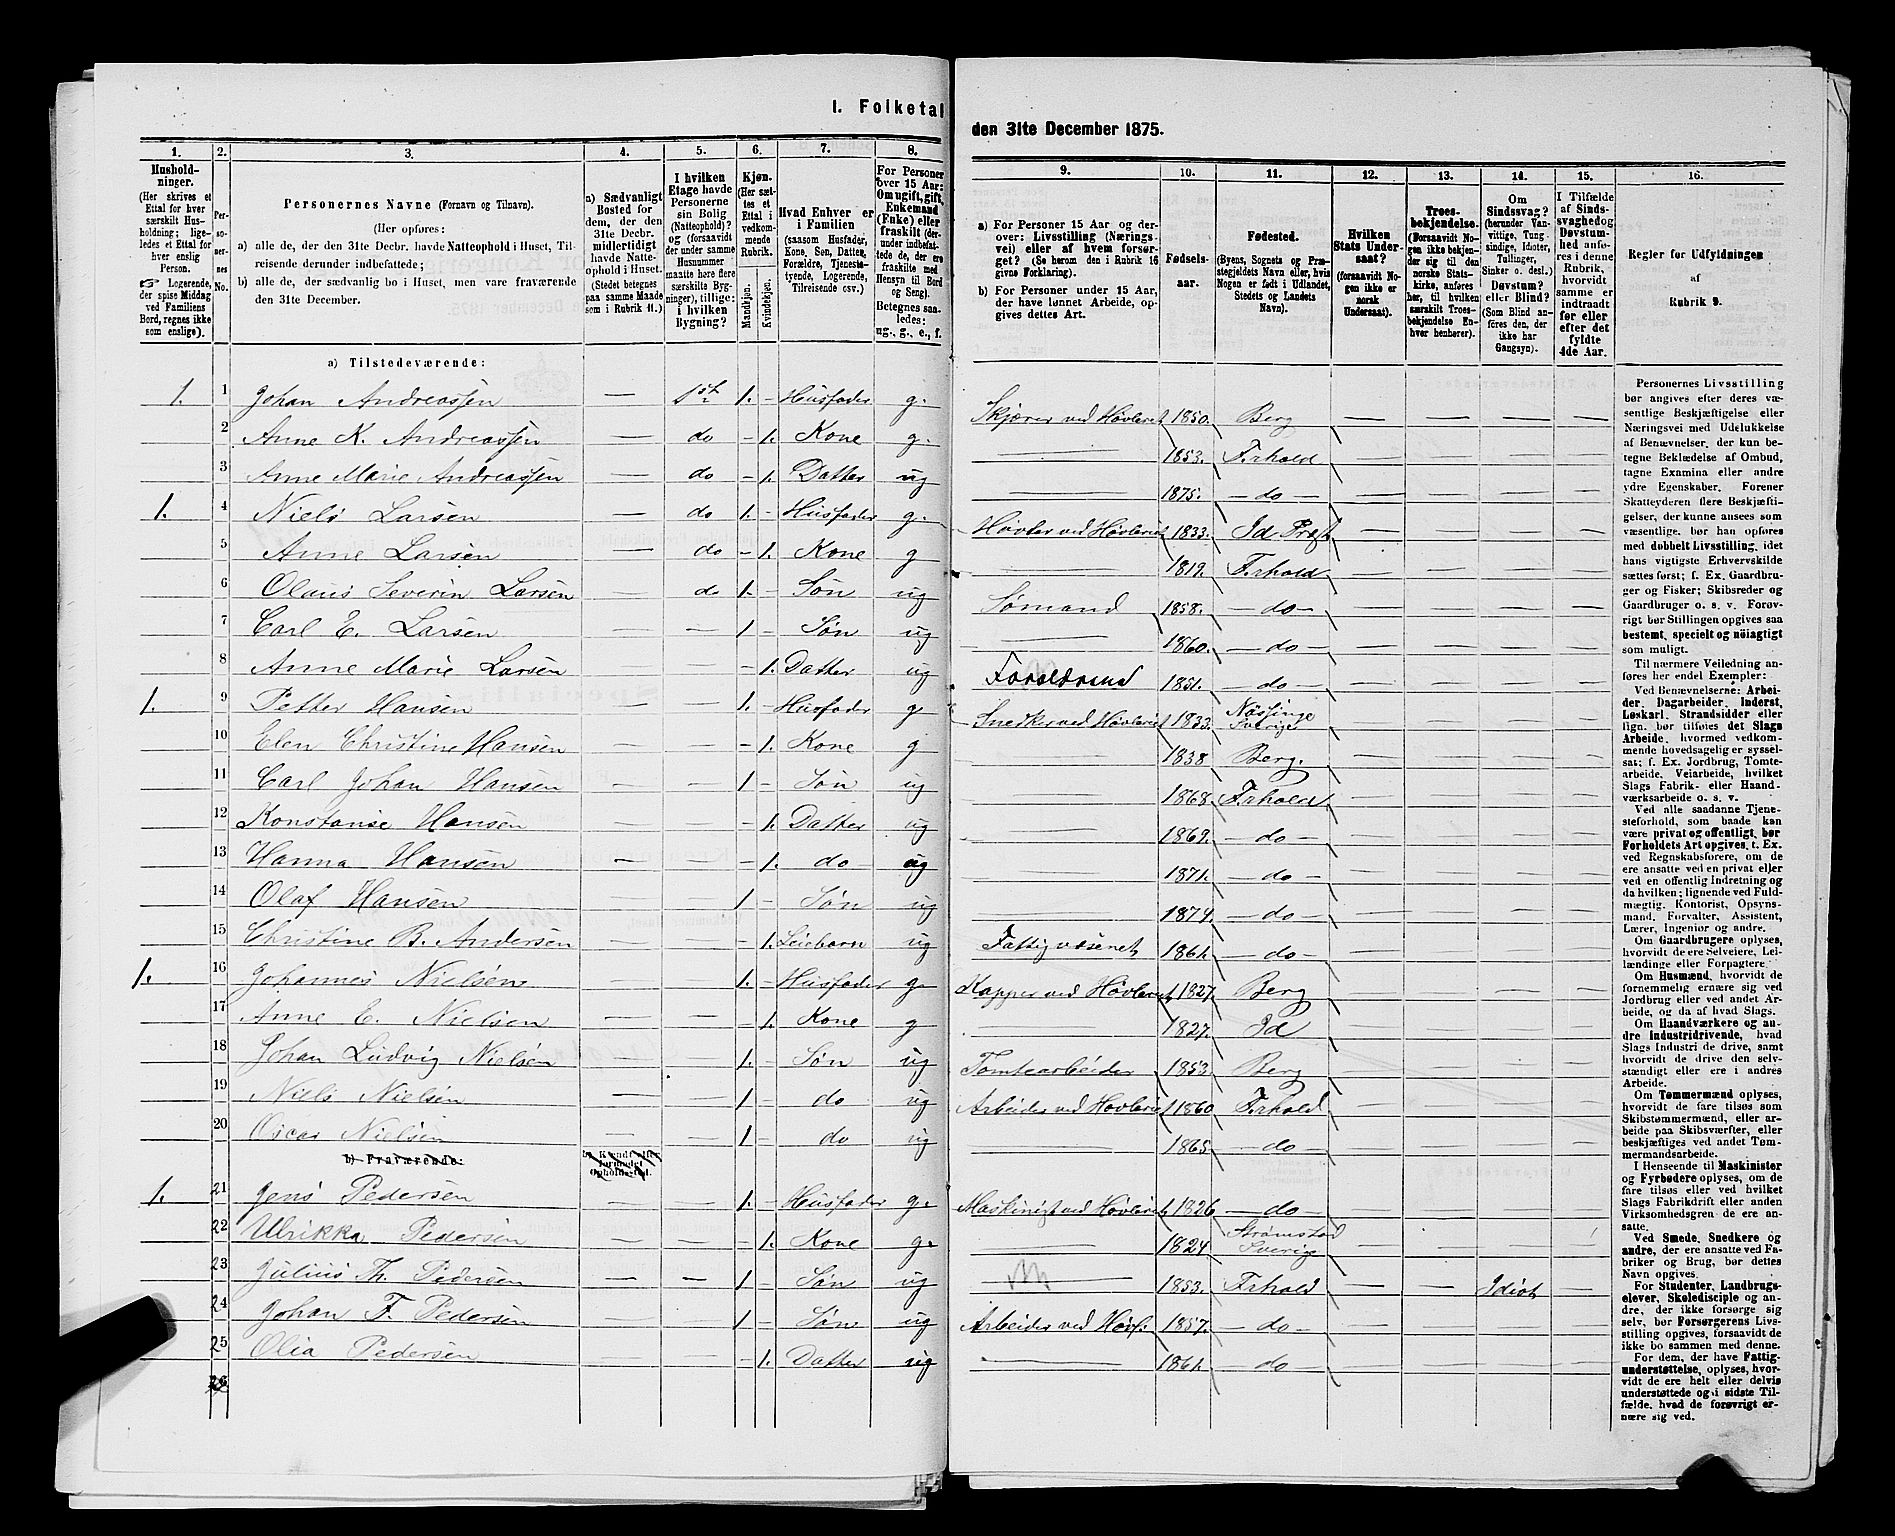 I. Folketal
den 31te December 1875.
1. 2. 3. 4. 5. 6. 7. 8. 9. 10. 11. 12. 13. 14. 15. 16.
Husholdninger.
(Her skrives et Ettal for hver særskilt Husholdning; ligeledes et Ettal for hver enslig Person.
☞ Logerende, der spise Middag ved Familiens Bord, regnes ikke som enslige).
Personernes No.
Personernes Navne (Fornavn og Tilnavn).
(Her opføres:
a) alle de, der den 31te Decbr. havde Natteophold i Huset, Tilreisende derunder indbefattede;
b) alle de, der sædvanlig bo i Huset, men vare fraværende den 31te December.
a) Sædvanligt Bosted for dem, der den 31te Decbr. midlertidigt havde Natteophold i Huset. (Stedet betegnes paa samme Maade som i Rubrik 11.)
I hvilken Etage havde Personerne sin Bolig (Natteophold)? og (forsaavidt der under samme Husnummer maatte høre flere særskilte Bygninger), tillige: i hvilken Bygning?
Kjøn. (Her sættes et Ettal i vedkommende Rubrik.
Mandkjøn. Kvindekjøn.
Hvad Enhver er i Familien (saasom Husfader, Kone, Søn, Datter, Forældre, Tjenestetyende, Logerende, Tilreisende osv.)
For Personer over 15 Aar: Om ugift, gift, Enkemand (Enke) eller fraskilt (derunder indbefattede de, ere fraskilte med Hensyn til Bord og Seng). Betegnes saaledes: ug., g., e., f.
a) For Personer 15 Aar og derover: Livsstilling (Næringsvei) eller af hvem forsørget? (Se herom den i Rubrik 16 givne Forklaring).
b) For Personer under 15 Aar, der have lønnet Arbeide, opgives dettes Art.
Fødselsaar.
Fødested.
(Byens, Sognets og Præstegjeldets Navn eller, hvis Nogen er født i Udlandet, Stedets og Landets Navn).
Hvilken Stats Undersaat?
(forsaavidt Nogen ikke er norsk Undersaat).
Troesbekjendelse.
(Forsaavidt Nogen ikke bekjender sig til den norske Statskirke, anføres her, til hvilken særskilt Troesbekjendelse Enhver henhører).
Om Sindssvag? (herunder Vanvittige, Tungsindige, Idioter, Tullinger, Sinker o. desl.) Døvstum? eller Blind? (Som Blind anføres den, der ikke har Gangsyn).
I Tilfælde af Sindssvaghed og Døvstumhed anføres i denne Rubrik, hvorvidt samme er indtraadt før eller efter det fyldte 4de Aar.
Regler for Udfyldningen af Rubrik 9.
a) Tilstedeværende:
1. 1 Johan Andreassen — 1st 1. – Husfader g. Skjærer ved Høvleriet 1850. Berg — — — —
2 Anne K. Andreassen — do – 1. Kone g. — 1853. Fr.hald — — — —
3 Anne Marie Andreassen — do – 1. Datter ug — 1875. – do – — — — —
1. 4 Niels Larsen — do 1. – Husfader g. Høvler ved Høvleriet 1833. Id Præst. — — — —
5 Anne Larsen — do – 1. Kone g — 1819. Fr.hald — — — —
6 Olaus Severin Larsen — do 1. – Søn ug Sømand 1858. – do – — — — —
7 Carl E. Larsen — — 1 – Søn ug — 1860. – do – — — — —
8 Anne Marie Larsen — — – 1. Datter ug 1851. – do – — — — —
1. 9 Petter Hansen — — 1. – Husfader g Snedker ved Høvleriet 1833. Sverige — — — —
10 Elen Christine Hansen — — – 1. Kone g — 1838 Berg. — — — —
11 Carl Johan Hansen — — 1 – Søn ug — 1868 Fr.hald — — — —
12 Konstanse Hansen — — – 1. Datter ug — 1869. – do – — — — —
13 Hanna Hansen — — – 1. do ug — 1871. – do – — — — —
14 Olaf Hansen — — 1 – Søn ug — 1874. – do – — — — —
15 Christine B. Andersen — — – 1. Leiebarn ug Fattigvæsenet 1861. – do – — — — —
1. 16 Johannes Nielsen — — 1. – Husfader g. Kapper ved Høvleriet 1827. Berg — — — —
17 Anne E. Nielsen — — – 1. Kone g — 1827. Id — — — —
18 Johan Ludvig Nielsen — — 1. – Søn ug Tomtearbeider 1853. Berg — — — —
19 Niels Nielsen — — 1 – do ug Arbeider ved Høvleriet 1860 Fr.hald — — — —
20 Oscar Nielsen — — 1 – do ug — 1865 – do – — — — —
b) Fraværende:
b) Kjendt eller formodet Opholdssted.
1. 21 Jens Pedersen — — 1. – Husfader g. Maskinist ved Høvleriet 1826 – do – — — — —
22 Ulrikka Pedersen — — – 1. Kone g. — 1824 Strømstad Sverige — — — —
23 Julius Th. Pedersen — — 1 – Søn ug — 1853. Fr.hald — — Idiot —
24 Johan F. Pedersen — — 1 – Søn ug Arbeider ved Høvl: 1857. – do – — — — —
25 Olia Pedersen — — – 1. Datter ug — 1861. – do – — — — —
26
Personernes Livsstilling bør angives efter deres væsentlige Beskjæftigelse eller Næringsvei med Udelukkelse af Benævnelser, der kun betegne Beklædelse af Ombud, tagne Examina eller andre ydre Egenskaber. Forener Skatteyderen flere Beskjæftigelser, der kunne ansees som væsentlige, bør han opføres med dobbelt Livsstilling, idet hans vigtigste Erhvervskilde sættes først; f. Ex. Gaardbruger og Fisker; Skibsreder og Gaardbruger o. s. v. Forøvrigt bør Stillingen opgives saa bestemt, specielt og nöiagtigt som muligt.
Til nærmere Veiledning anføres her endel Exempler:
Ved Benævnelserne: Arbeider, Dagarbeider, Inderst, Løskarl, Strandsidder eller lign. bør tilføies det Slags Arbeide, hvormed vedkommende hovedsagelig er sysselsat; f. Ex. Jordbrug, Tomtearbeide, Veiarbeide, hvilket Slags Fabrik- eller Haandværksarbeide o. s. v.
Ved alle saadanne Tjenesteforhold, som baade kan være privat og offentligt, bør Forholdets Art opgives, t. Ex. ved Regnskabsførere, om de ere ansatte ved en privat eller ved en offentlig Indretning og da hvilken; lignende ved Fuldmægtig, Kontorist, Opsynsmand, Forvalter, Assistent, Lærer, Ingeniør og andre.
Om Gaardbrugere oplyses, hvorvidt de ere Selveiere, Leilændinge eller Forpagtere.
Om Husmænd, hvorvidt de fornemmelig ernære sig ved Jordbrug eller ved andet Arbeide, og da af hvad Slags.
Om Haandværkere og andre Industridrivende, hvad Slags Industri de drive, samt hvorvidt de drive den selvstændigt eller ere i andres Arbeide.
Om Tømmermænd oplyses, hvorvidt de fare tilsøs som Skibstømmermænd, eller arbeide paa Skibsværfter, eller beskjæftiges ved andet Tømmermandsarbeide.
I Henseende til Maskinister og Fyrbødere oplyses, om de fare tilsøs eller ved hvilket Slags Fabrikdrift eller anden Virksomhedsgren de ere ansatte.
Ved Smede, Snedkere og andre, der ere ansatte ved Fabriker og Brug, bør dettes Navn opgives.
For Studenter, Landbrugselever, Skoledisciple og andre, der ikke forsørge sig selv, bør Forsørgerens Livsstilling opgives, forsaavidt de ikke bo sammen med denne.
For dem, der have Fattigunderstøttelse, oplyses, hvorvidt de ere helt eller delvis understøttede og i sidste Tilfælde, hvad de forøvrigt ernære sig ved.